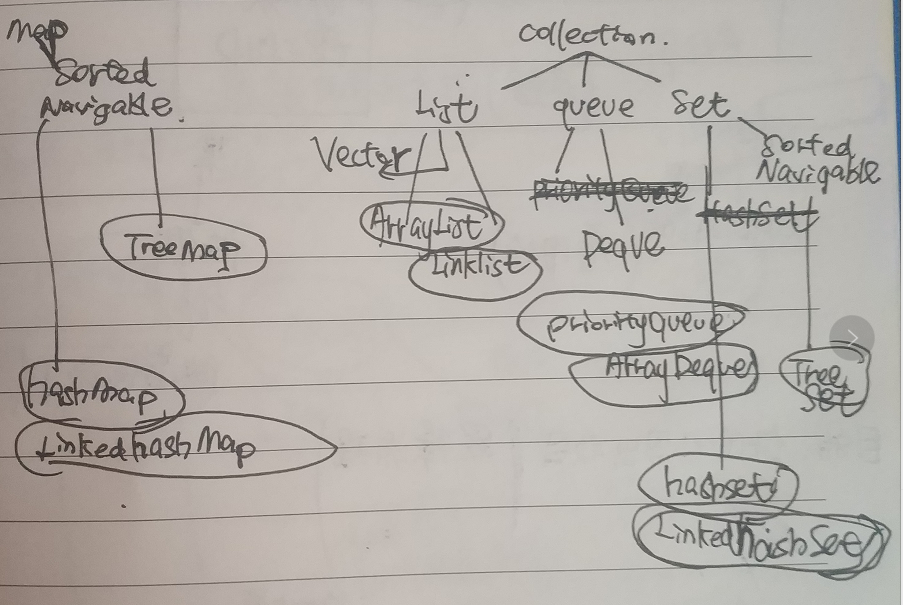 Map
Sorted
Navigable.
TreeMap
hashMap
LinkedhashMap
Collection.
List
queue
Set
Vector
ArrayList
Linklist
priorityQueue
Deque
priorityqueue
ArrayDeque
Sorted
Navigable
HashSet
Tree
Set
hashset
LinkedhashSet